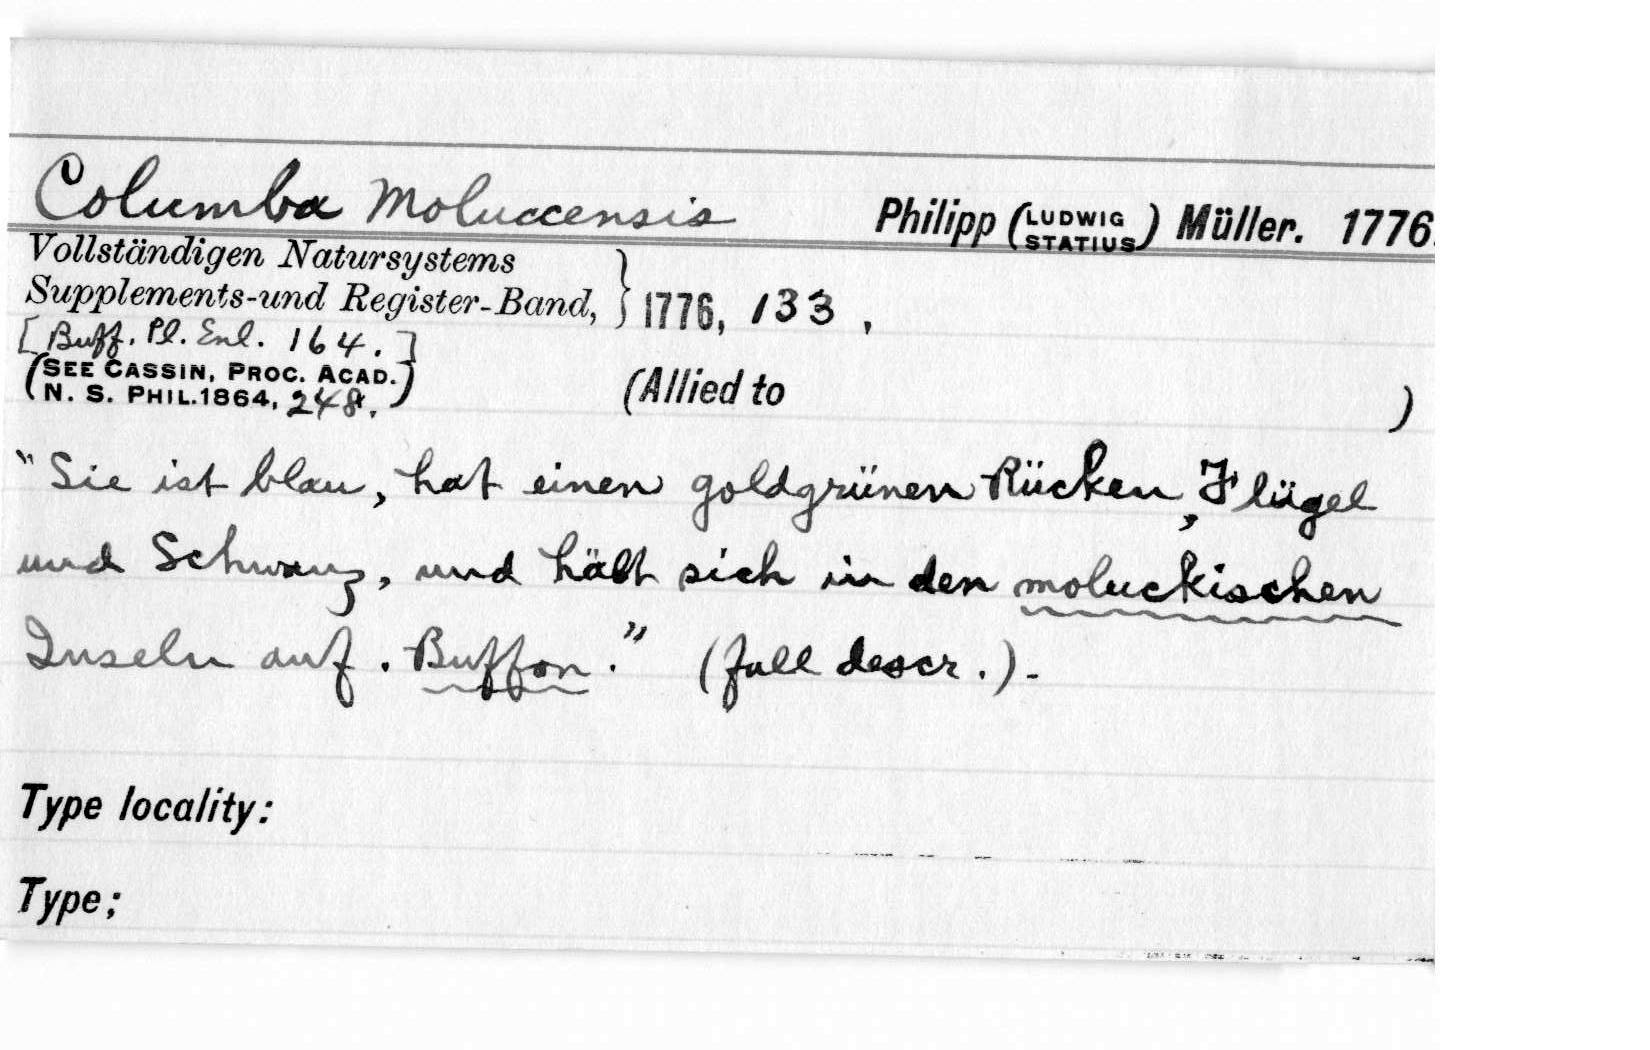 Columba moluccensis Philipp (LUDWIG STATIUS) Müller. 1776.
Vollständigen Natursystems
Supplements-und Register-Band, } 1776, 133 ,
[Buff. Pl. Enl. 164.]
(SEE CASSIN, PROC. ACAD.
N. S. PHIL. 1864, 248.) (Allied to )
"Sie ist blau, hat einen goldgrünen Rücken, Flügel
und Schwanz, und hält sich in den moluckischen
Inseln auf. Buffon." (full descr.).-
Type locality:
Type;